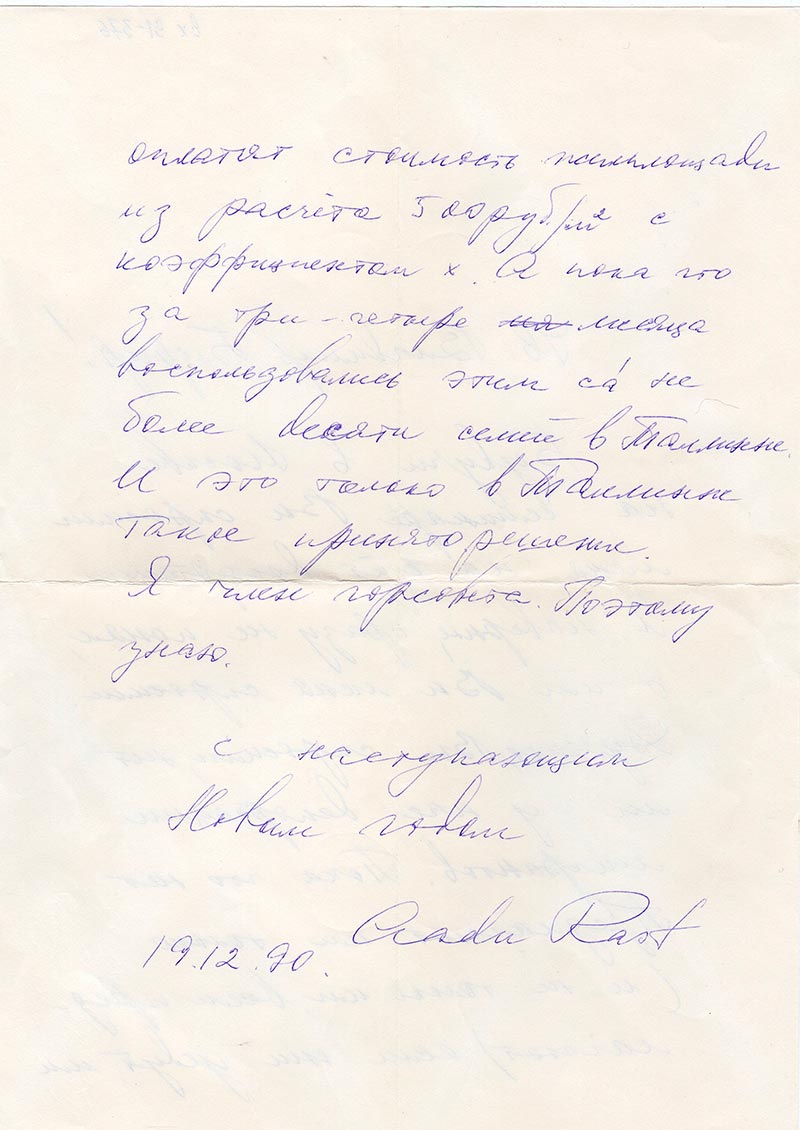 оплатят стоимость жилплощади
из расчёта 500 руб/м² с
коэффициентом х. А пока что
за три-четыре месяца
воспользовались этим са́ не
более десяти семей в Таллинне.
И это только в Таллинне
такое принято решение.
Я член горсовета. Поэтому
знаю.
С наступающим
Новым годом
Rast
19.12.90.